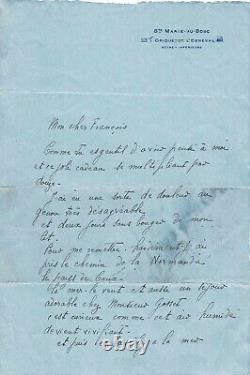 Ste MARIE-AU-BOSC
CRIQUETOT L'ESNEVAL
SEINE-INFÉRIEURE
Mon cher François
Comme tu es gentil d'avoir pensé à moi
et ce joli cadeau se multipliant par
douze.
J'ai eu une sorte de douleur au
genou très désagréable
et deux jours sans bouger de mon
lit.
Pour me remettre, j'ai
pris le chemin de la Normandie
le pays de
la mer le vent et aussi un séjour
adorable chez Monsieur Gosset
c'est curieux comme cet air humide
devient vivifiant
et puis il y a la mer